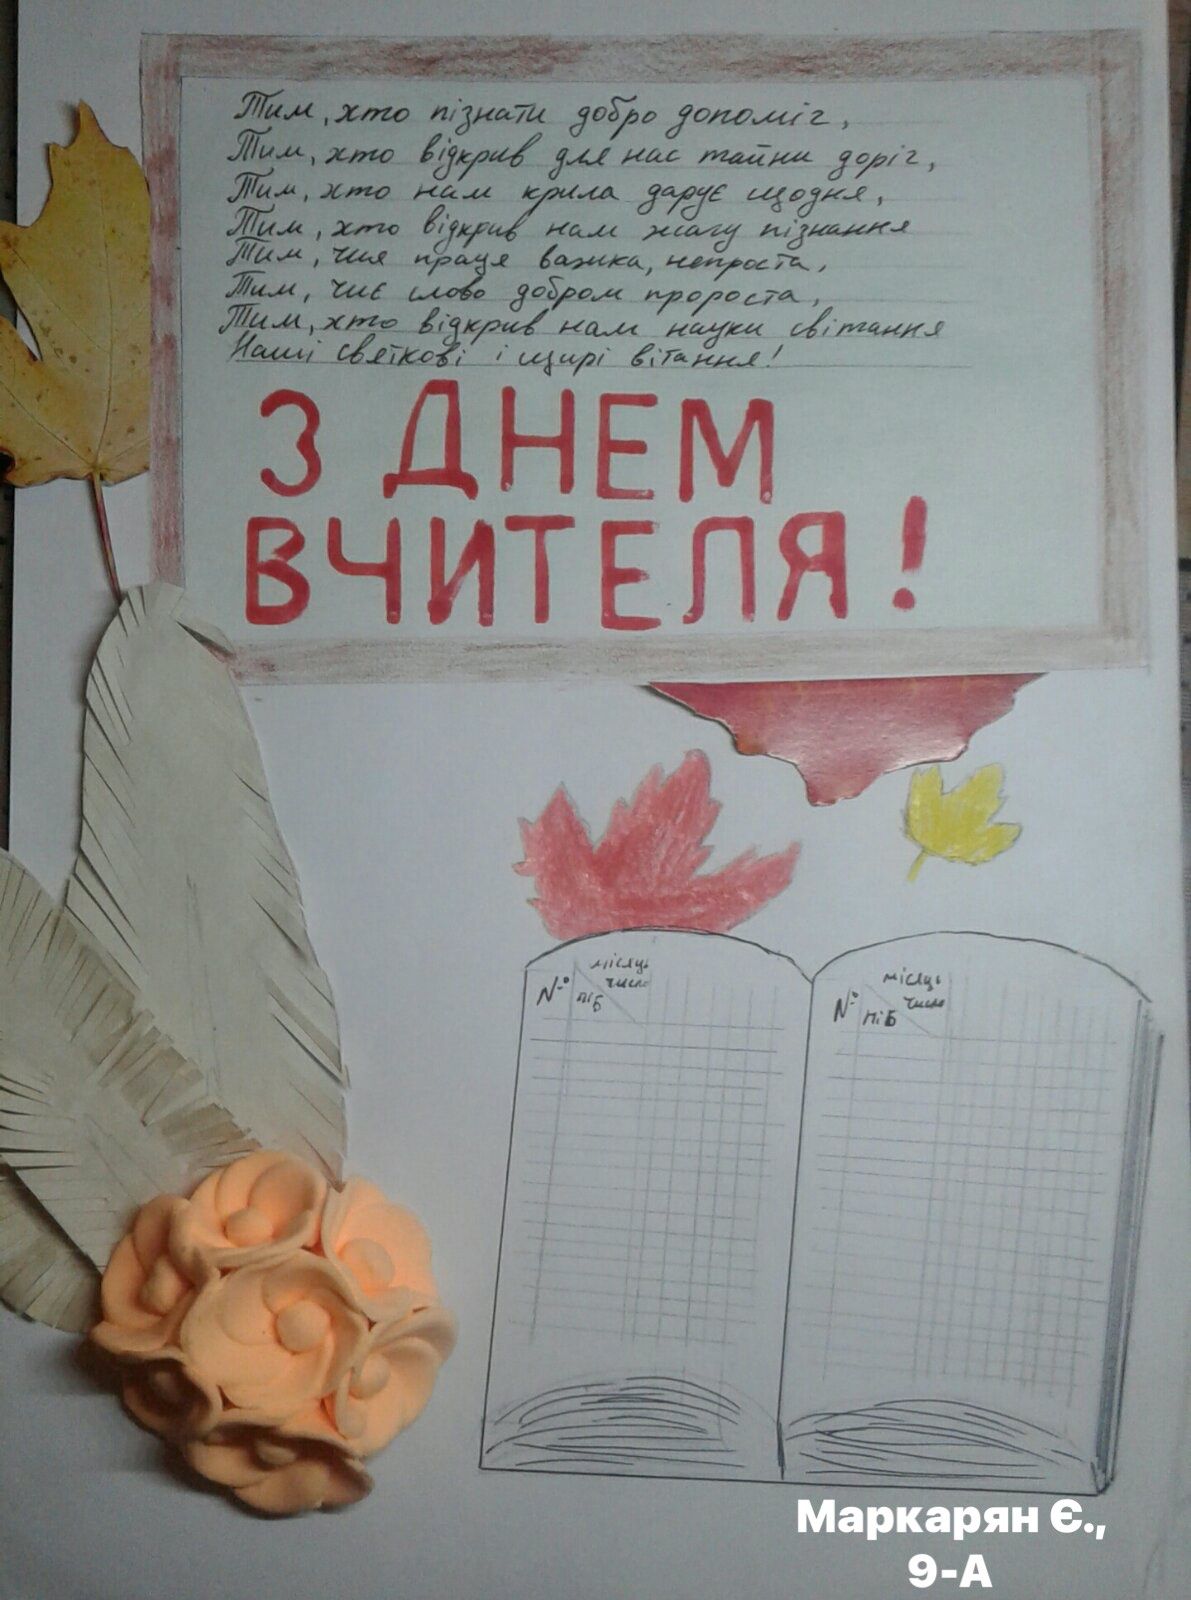 Тим, хто пізнати добро допоміг,
Тим, хто відкрив для нас тайни доріг,
Тим, хто нам крила дарує щодня,
Тим, хто відкрив нам жагу пізнання
Тим, чия праця важка, непроста,
Тим, чиє слово добром пророста,
Тим, хто відкрив нам науки світання
Наші святкові і щирі вітання!
З ДНЕМ
ВЧИТЕЛЯ!
місяць
число
№ ПІБ
місяць
число
№ ПІБ
Маркарян Є.,
9-А